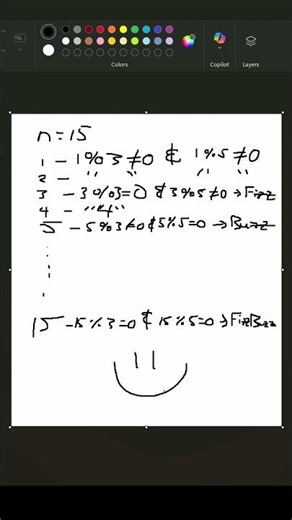 Colors
Copilot
Layers
n=15
1 - 1%3≠0 & 1%5≠0
2 - " " " "
3 - 3%3=0 & 3%5≠0 → Fizz
4 - "4"
5 - 5%3≠0 & 5%5=0 → Buzz
15 - 15%3=0 & 15%5=0 → FizBuzz